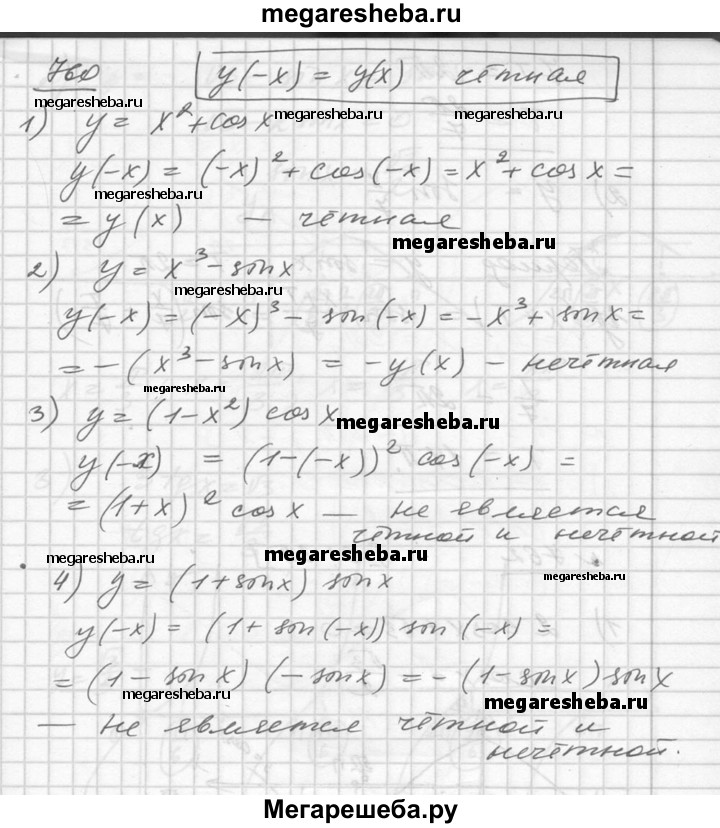 megaresheba.ru
760 y(-x) = y(x) чётная
megaresheba.ru megaresheba.ru megaresheba.ru
1) y = x² + cos x
y(-x) = (-x)² + cos(-x) = x² + cos x =
megaresheba.ru
= y(x) — чётная
megaresheba.ru
2) y = x³ - sin x
megaresheba.ru
y(-x) = (-x)³ - sin(-x) = -x³ + sin x =
= -(x³ - sin x) = -y(x) - нечётная
megaresheba.ru
3) y = (1-x²) cos x
megaresheba.ru
y(-x) = (1-(-x))² cos(-x) =
= (1+x)² cos x — не является
чётной и нечётной
megaresheba.ru megaresheba.ru megaresheba.ru
4) y = (1+sin x) sin x
y(-x) = (1+sin(-x)) sin(-x) =
= (1-sin x)(-sin x) = -(1-sin x) sin x
megaresheba.ru megaresheba.ru
— не является чётной и
нечётной.
Мегарешеба.ру